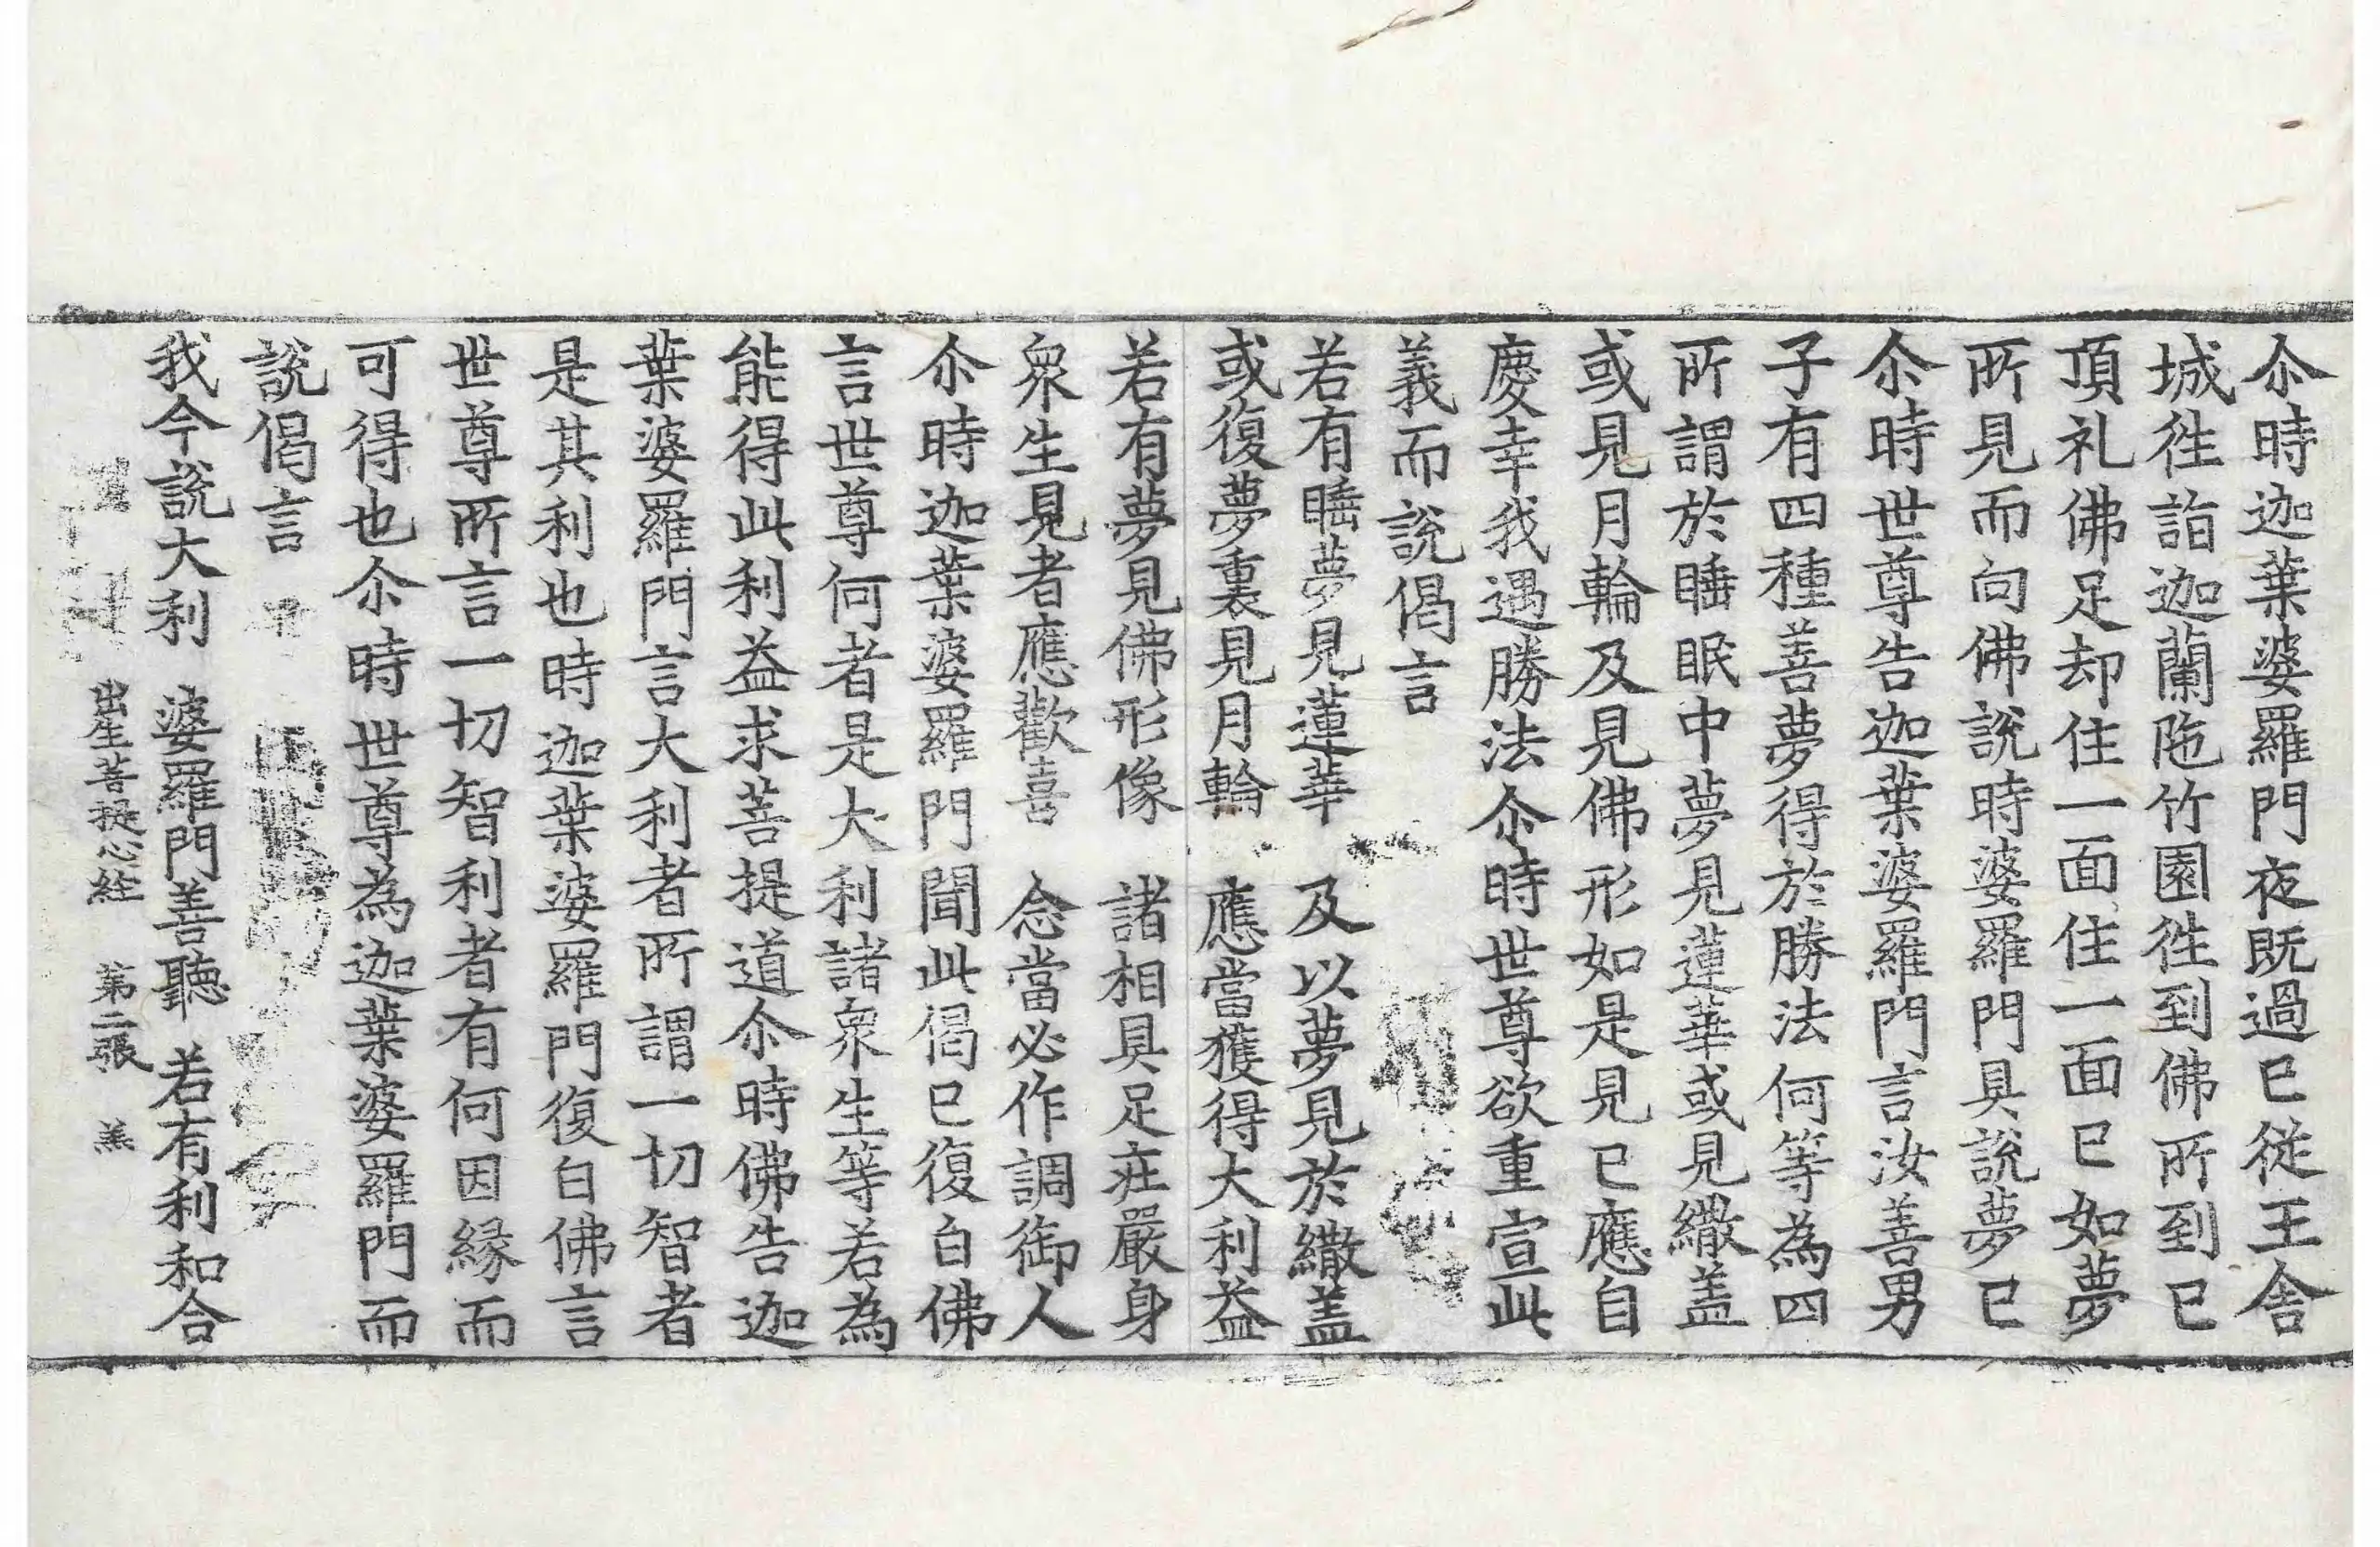 尒時迦葉婆羅門夜既過已從王舍
城徃詣迦蘭陁竹園徃到佛所到已
頂礼佛足却住一面住一面已如夢
所見而向佛說時婆羅門具說夢已
尒時世尊告迦葉婆羅門言汝善男
子有四種善夢得於勝法何等為四
所謂於睡眠中夢見蓮華或見繖盖
或見月輪及見佛形如是見已應自
慶幸我遇勝法尒時世尊欲重宣此
義而說偈言
若有睡夢見蓮華　及以夢見於繖盖
或復夢裏見月輪　應當獲得大利益
若有夢見佛形像　諸相具足莊嚴身
衆生見者應歡喜　念當必作調御人
尒時迦葉婆羅門聞此偈已復白佛
言世尊何者是大利諸衆生等若為
能得此利益求菩提道尒時佛告迦
葉婆羅門言大利者所謂一切智者
是其利也時迦葉婆羅門復白佛言
世尊所言一切智利者有何因緣而
可得也尒時世尊為迦葉婆羅門而
說偈言
我今說大利　婆羅門善聽　若有利和合
出生菩提心経　第二張　羔